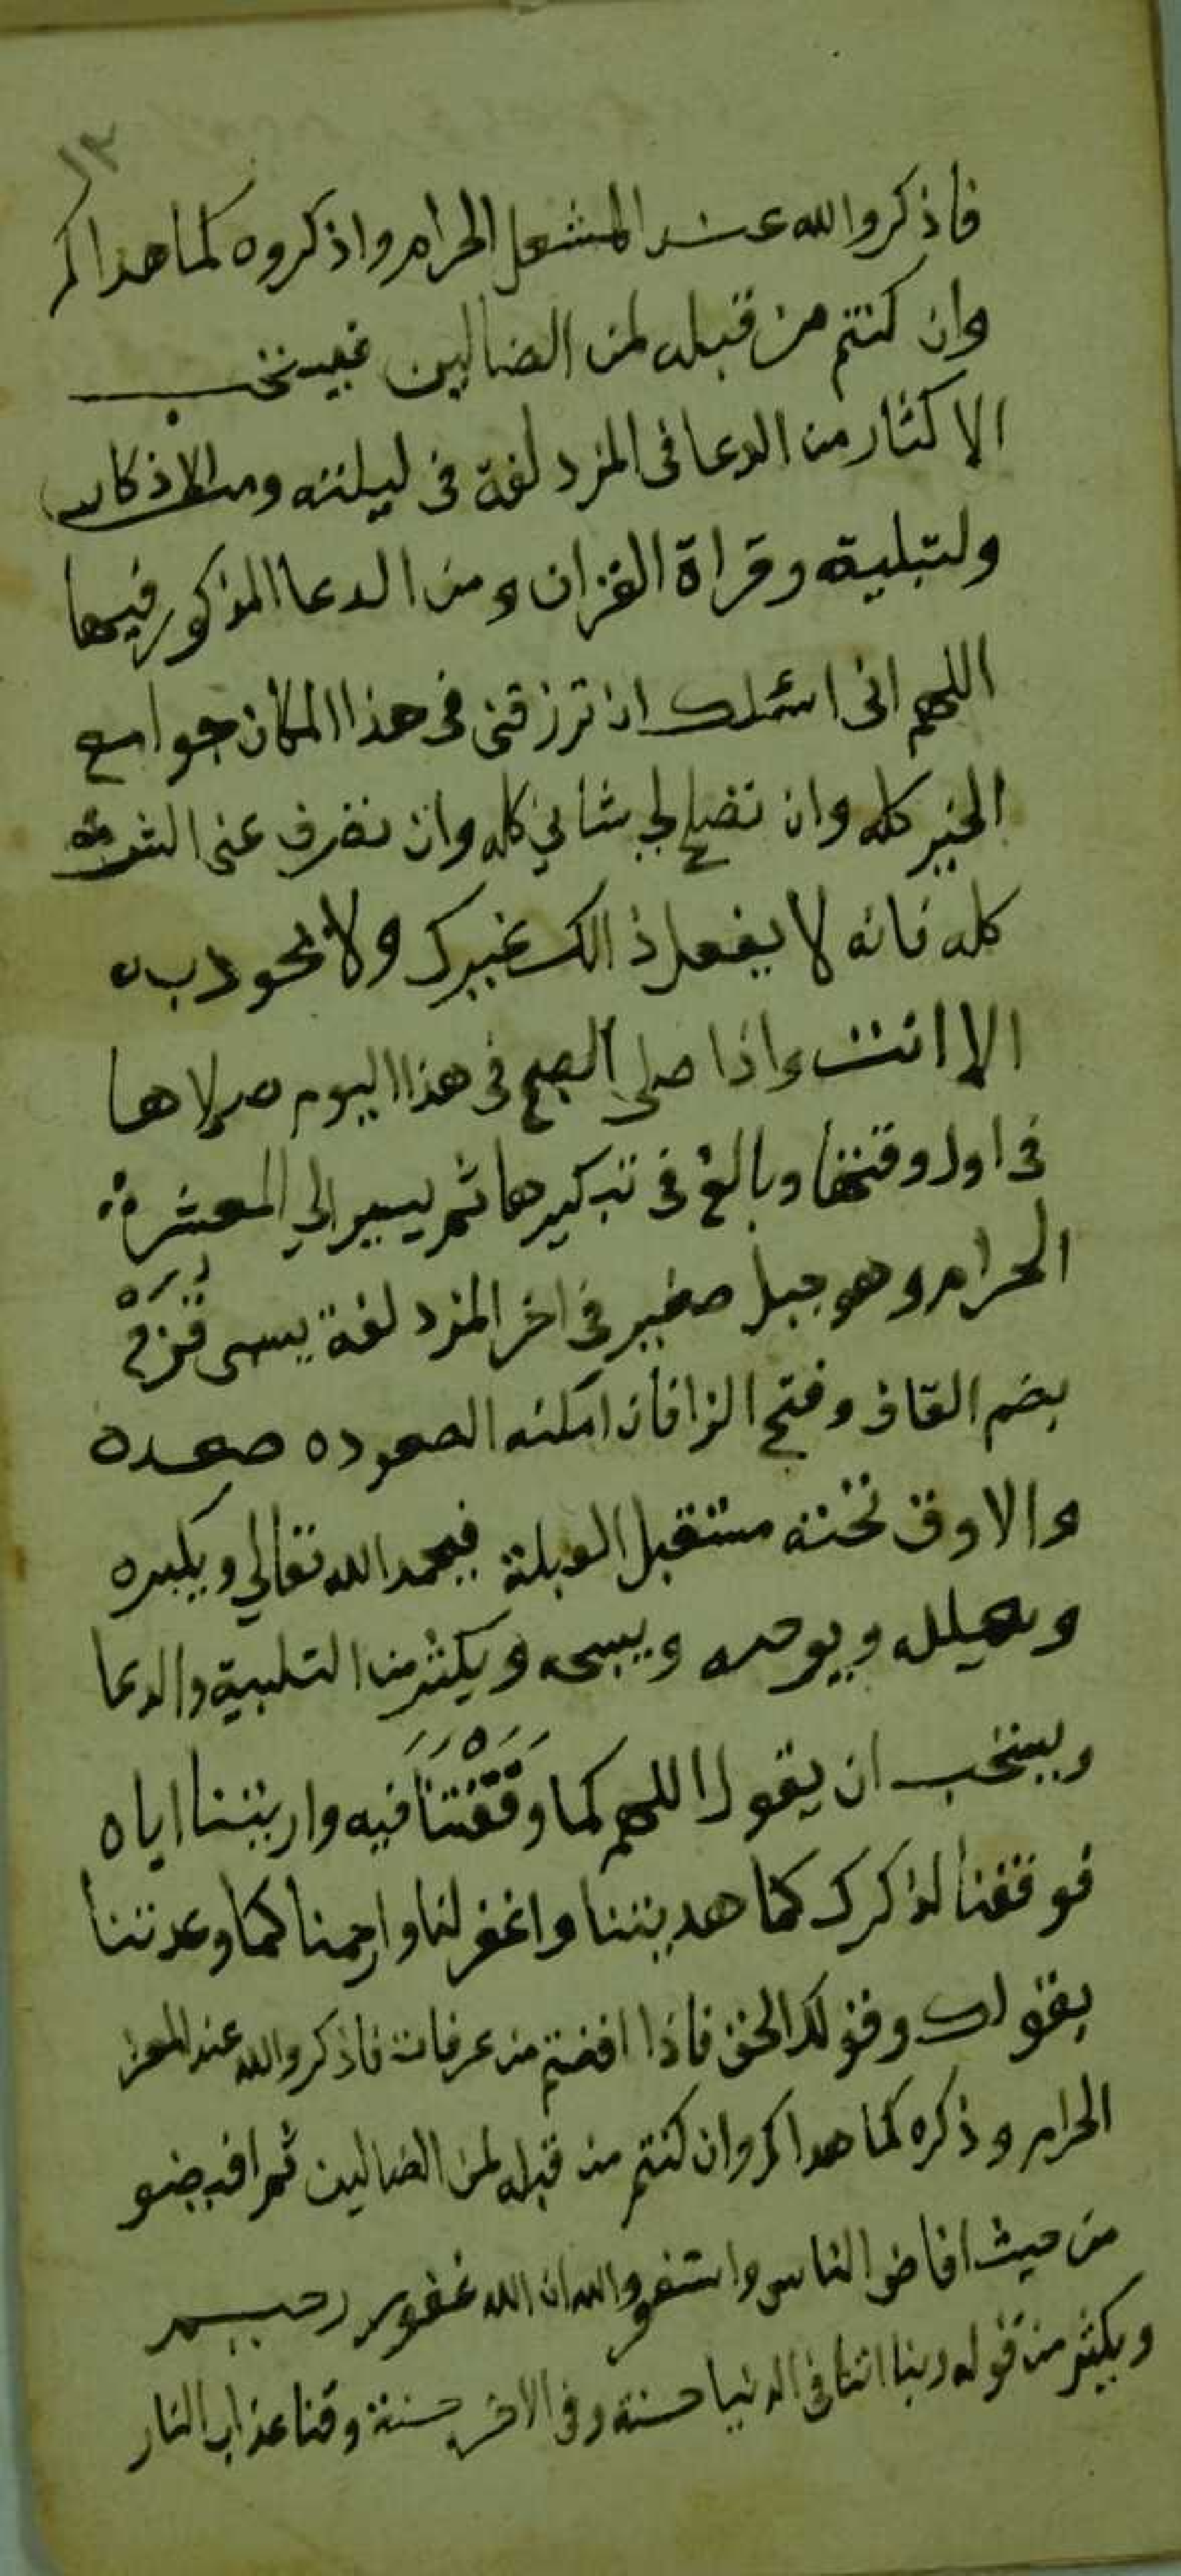 ١٣
فاذكروا الله عند المشعل الحرام واذكروه كما هداكم
وان كنتم من قبله لمن الضالين فيستحب
الاكثار من الدعا فى المزدلفة فى ليلته ومن الاذكار
ولتبلية وقراة القران ومن الدعا المذكور فيها
اللهم انى اسئلك ان ترزقنى فى هذا المكان جوامع
الخير كله وان تصلح لي شاني كله وان تصرف عنى الشر
كله فانه لا يفعل ذالك غيرك ولا يجود به
الا انت واذا صلى الصبح فى هذا اليوم صلاها
فى اول وقتها وبالغ فى تبكيرها ثم يسير الي المعشر
الحرام وهو جبل صغير فى اخر المزدلفة يسمى قُزَحْ
بضم القاف وفتح الزا فان امكنه الصعوده صعده
والا وق تحته مستقبل القبلة فيحمد الله تعالي ويكبره
ويهلله ويوحده ويسبحه ويكثر من التلبية والدعا
ويستحب ان يقول اللهم كما وَقَّفْتَنَا فيه واريتنا اياه
فوفقنا لذكرك كما هديتنا واغفر لنا وارحمنا كما وعدتنا
بقولك وقولك الحق فاذا افضتم من عرفات فاذكروا الله عند المعر
الحرام وذكره كما هداكم وان كنتم من قبله لمن الضالين ثم افيضو
من حيث افاض الناس واستغفروا الله ان الله غفور رحيم
ويكثر من قوله ربنا اتنا فى الدنيا حسنة وفى الاخرة حسنة وقنا عذاب النار